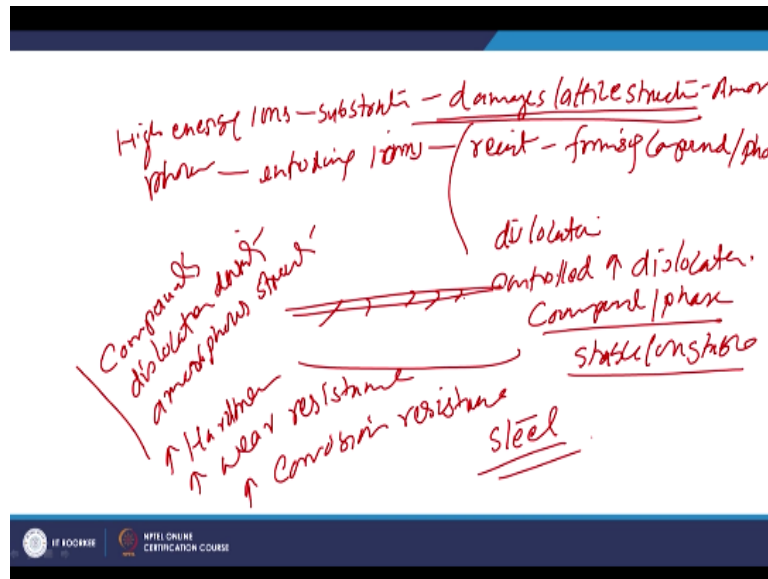 High energy ions - substrate - damages lattice structu - Amor
phou - ions - react - forming compound/pha
dislocation
controlled ↑ dislocation.
Compound/phase
stable/unstable
Compounds
dislocation density
amorphous struct
↑ Hardness
↑ wear resistance
↑ Corrosion resistance
Steel
IIT ROORKEE
NPTEL ONLINE
CERTIFICATION COURSE